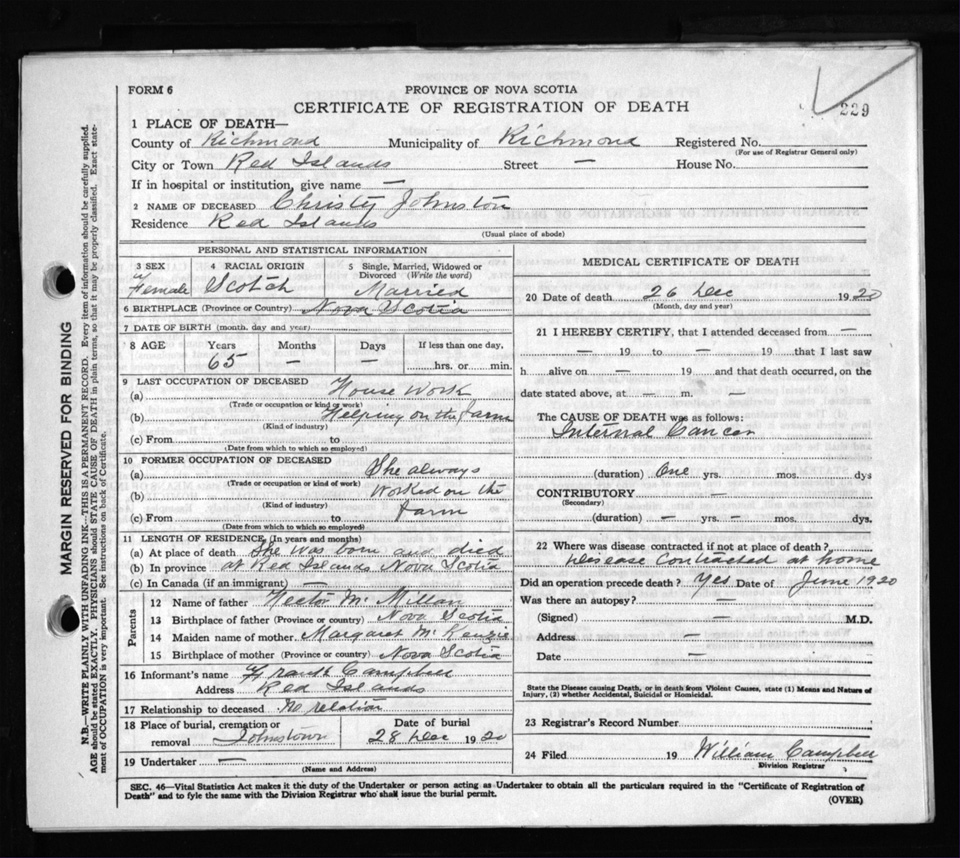 FORM 6
PROVINCE OF NOVA SCOTIA
CERTIFICATE OF REGISTRATION OF DEATH
229
1 PLACE OF DEATH—
County of Richmond Municipality of Richmond Registered No.
(For use of Registrar General only)
City or Town Red Islands Street — House No.
If in hospital or institution, give name —
2 NAME OF DECEASED Christy Johnston
Residence Red Islands
(Usual place of abode)
PERSONAL AND STATISTICAL INFORMATION
3 SEX Female
4 RACIAL ORIGIN Scotch
5 Single, Married, Widowed or Divorced (Write the word) Married
6 BIRTHPLACE (Province or Country) Nova Scotia
7 DATE OF BIRTH (month, day and year)
8 AGE Years Months Days If less than one day,
65 — — hrs. or min.
9 LAST OCCUPATION OF DECEASED
(a) House Work
(Trade or occupation or kind of work)
(b) Helping on the farm
(Kind of industry)
(c) From to
(Date from which to which so employed)
10 FORMER OCCUPATION OF DECEASED
(a) She always
(Trade or occupation or kind of work)
(b) worked on the
(Kind of industry)
(c) From to farm
(Date from which to which so employed)
11 LENGTH OF RESIDENCE (In years and months)
(a) At place of death She was born and died
(b) In province at Red Islands Nova Scotia
(c) In Canada (if an immigrant) —
Parents
12 Name of father Hector McMillan
13 Birthplace of father (Province or country) Nova Scotia
14 Maiden name of mother Margaret McKenzie
15 Birthplace of mother (Province or country) Nova Scotia
16 Informant's name Frank Campbell
Address Red Islands
17 Relationship to deceased No relation
18 Place of burial, cremation or removal Johnstown
Date of burial 28 Dec 1920
19 Undertaker —
(Name and Address)
MEDICAL CERTIFICATE OF DEATH
20 Date of death 26 Dec 1920
(Month, day and year)
21 I HEREBY CERTIFY, that I attended deceased from —
— 19 to — 19 that I last saw
h alive on — 19 and that death occurred, on the
date stated above, at — m. —
The CAUSE OF DEATH was as follows:
Internal Cancer
(duration) One yrs. mos. dys
CONTRIBUTORY —
(Secondary)
(duration) — yrs. — mos. dys.
22 Where was disease contracted if not at place of death?
Disease Contracted at home
Did an operation precede death? Yes Date of June 1920
Was there an autopsy? —
(Signed) — M.D.
Address —
Date —
State the Disease causing Death, or in death from Violent Causes, state (1) Means and Nature of
Injury, (2) whether Accidental, Suicidal or Homicidal.
23 Registrar's Record Number
24 Filed 19 William Campbell
Division Registrar
SEC. 46—Vital Statistics Act makes it the duty of the Undertaker or person acting as Undertaker to obtain all the particulars required in the "Certificate of Registration of
Death" and to fyle the same with the Division Registrar who shall issue the burial permit.
(OVER)
MARGIN RESERVED FOR BINDING
N.B.—WRITE PLAINLY WITH UNFADING INK—THIS IS A PERMANENT RECORD. Every item of information should be carefully supplied.
AGE should be stated EXACTLY. PHYSICIANS should STATE CAUSE OF DEATH in plain terms, so that it may be properly classified. Exact state-
ment of OCCUPATION is very important. See instructions on back of Certificate.